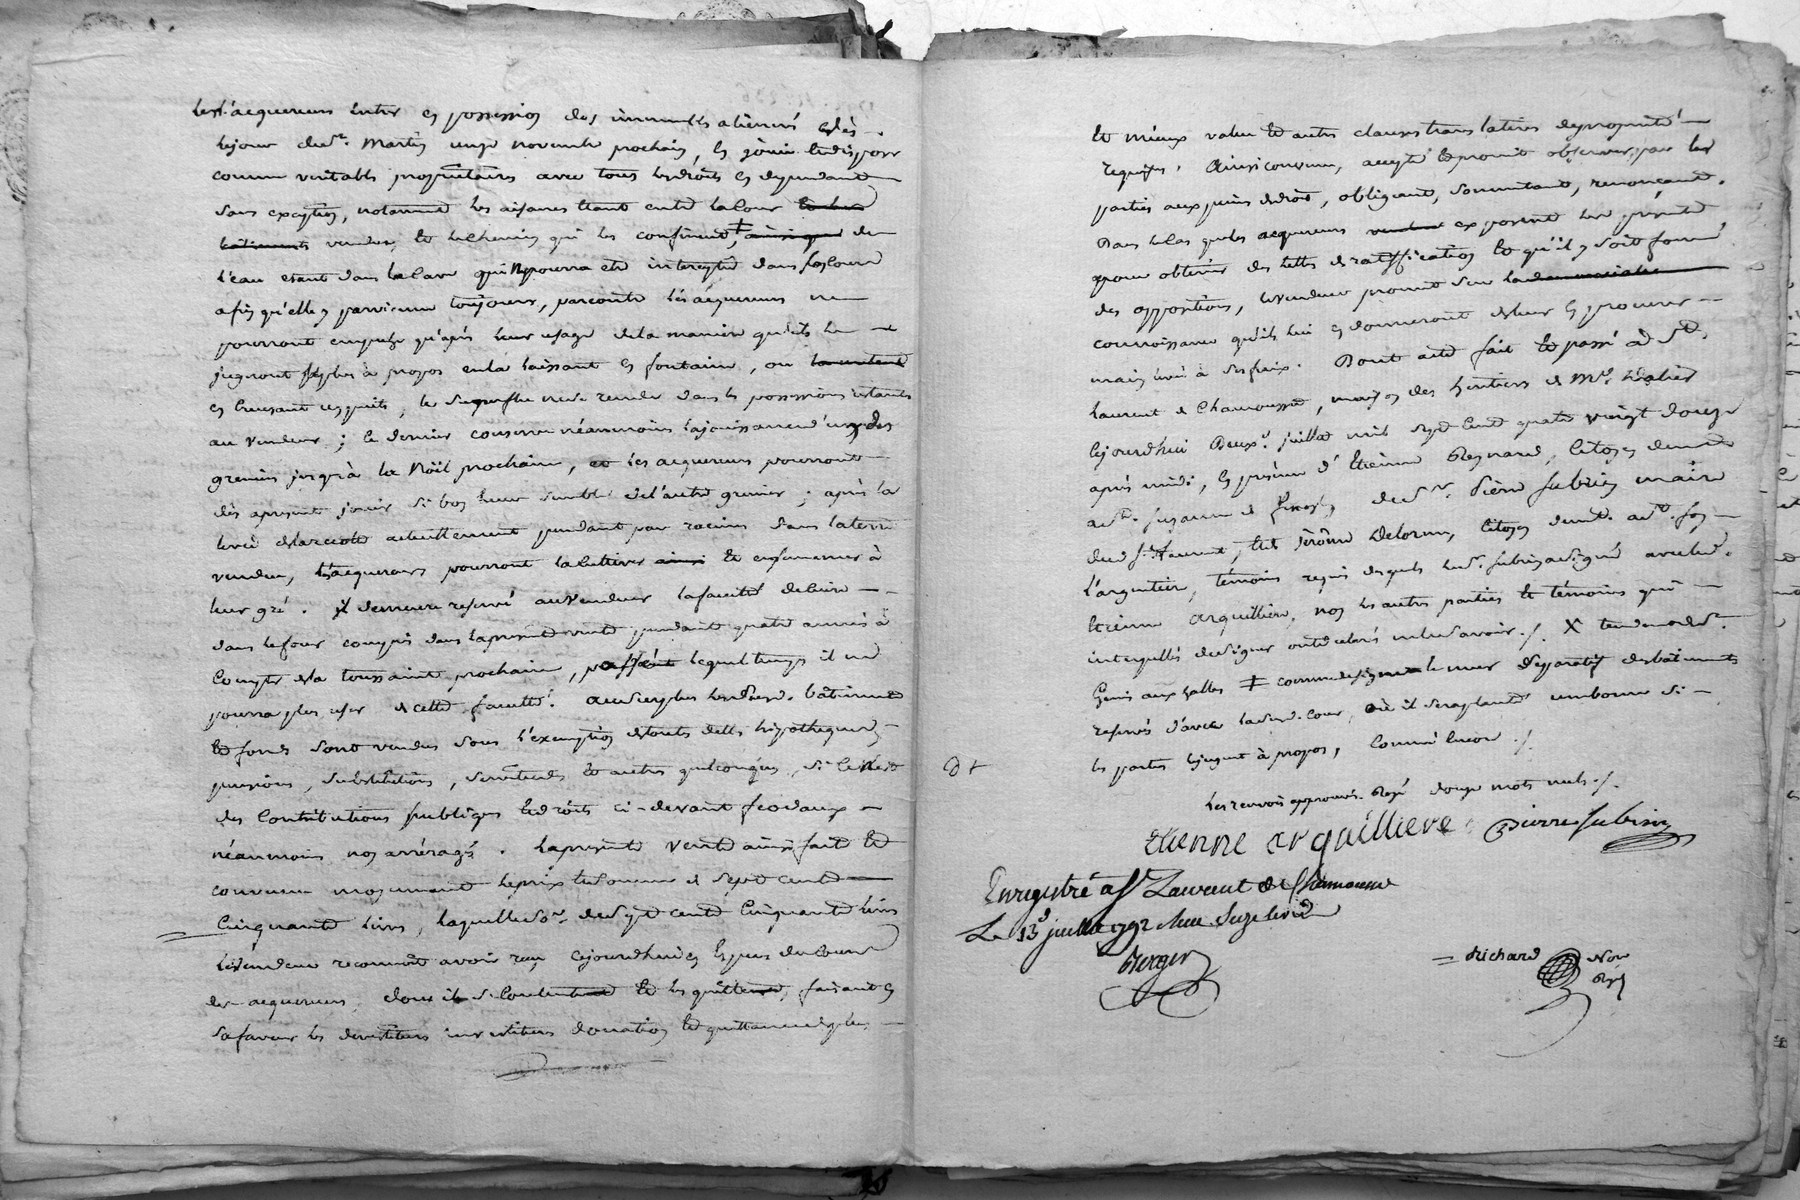 les acquereurs entrer en possession des immeubles alienés dès
le jour de St. Martin onze novembre prochain, en jouir et disposer
comme veritables proprietaires avec tous les droits en dependant
sans exception, notamment les aisances etant entre la cour et les
bâtiments vendus, et le chemin qui les confinent, ‡ ainsi que de
l'eau etant dans la cave qui ne pourra etre interceptée dans son cours
afin qu'elle y parvienne toujours, par contre les acquereurs ne
pourront empecher qu'après leur usage de la maniere qu'ils le
jugeront plus à propos en la laissant en fontaine, ou
en creusant un puits, le superflu ne se rende dans les possessions restantes
au vendeur ; ce dernier conserve néanmoins la jouissance d'un des
greniers jusqu'à la Noël prochaine, et les acquereurs pourront
dès apresent jouir si bon leur semble de l'autre grenier ; après la
levée de la recolte actuellement pendante par racines dans la terre
vendue, les acquereurs pourront la cultiver ainsi et ensemencer à
leur gré. Il demeure reservé au vendeur la faculté de cuire
dans le four compris dans la presente vente pendant quatre années à
compter de la toussaint prochaine, passé lequel temps il ne
pourra plus user de cette faculté. Au surplus lesdits bâtiments
et fonds sont vendus sous l'exemption de toutes dettes hypotheques
pensions, substitutions, servitudes et autres quelconques, si ce n'est
des contributions publiques et droits ci-devant feodaux
néanmoins non arréragés. La presente vente ainsi faite et
convenue moyennant le prix et somme de sept cent
cinquante livres, laquelle somme de sept cent cinquante livres
le vendeur reconnoit avoir reçu cejourd'hui en especes de cours
des acquereurs, dont il se contente et les quitte, faisant en
sa faveur les devestitures investitures donation et quittance de plus
et mieux value et autres clauses translatives de proprieté
requises. Ainsi convenu, accepté et promis observer par les
parties aux peines de droit, obligeant, soumettant, renonçant.
Dans le cas que les acquereurs exposent les présentes
pour obtenir des lettres de ratiffication et qu'il y soit formé
des oppositions, le vendeur promet sur la
connoissance qu'ils lui en donneront de leur en procurer
main levée à ses frais. Dont acte fait et passé à St.
Laurent de Chamousset, maison des heritiers de Mr.
cejourd'hui Deux juillet mil sept cent quatre vingt douze
après midi, en présence d'Etienne Reynard, citoyen demt
à Ste. de sr. Pierre Subrin maire
dud. St. Laurent, et Jérôme Delorme, citoyen demt. à St.
l'argentiere, témoins requis desquels led. Subrin a signé avec led.
Etienne arquilliere, non les autres parties et témoins qui
interpellés de signer ont declaré ne le savoir ./. X
Genis aux halles ‡ comme le mur separatif des bâtiments
reservés d'avec lad. cour, où il sera planté une borne si
les parties le jugent à propos,
Les renvois approuvés. Rayé douze mots nuls ./.
etienne arquilliere Pierre Subrin
Enregistré à St Laurent de Chamousset
Le 13 juillet 1792
Berger
Richard Nore